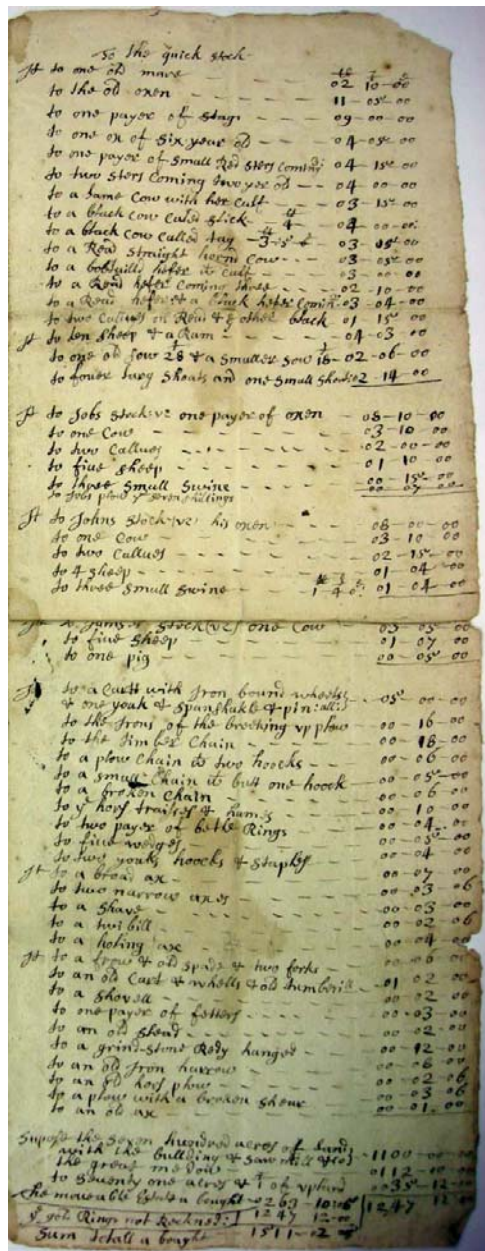 To the quick stock
It to one old mare - - - - 02 10-00
to the old oxen - - - - 11-05-00
to one payer of stags - - 09-00-00
to one ox of six year old - - 04-05-00
to one payer of small Red sters coming 04-15-00
to two sters Coming two yer old - - 04-00-00
to a lame Cow with her Calf - - 03-15-00
to a black Cow Caled slick - 4 - 04-00-00
to a black Cow Called tag - 3-5 03-05-00
to a Read straight horn Cow - - 03-05-00
to a bobtaild hefer Calf - - 03-00-00
to a Read hefer Coming three - - 02-10-00
to a Read hefer & a black hefer 03-04-00
to two Callves on Read & other black 01 15 00
It to ten sheep & a Ram - - 04-03-00
to one old sow 28 & a smaller sow 18 - 02-06-00
to fower larg shoats and one small 2-14-00
It to Jobs stock (vz) one payer of oxen - 08-10-00
to one Cow - - - - 03-10-00
to two Callves - - - - 02-00-00
to five sheep - - - 01 10-00
to three small swine - - 00-15-00
to Jobs plow seven shillings 00 07 00
It to Johns stock (vz) his oxen - - 08-00-00
to one Cow - - - - 03-10 00
to two Callves - - - 02-15-00
to 4 sheep - - - 01-04-00
to three small swine - - 1 4 0 01-04-00
stock (vz) one Cow - 03 05 00
to five sheep - - - 01 07 00
to one pig - - - 00-05-00
to a Cart with Iron bound wheels
& one yoak & span shakle & pin: all - 05-00-00
to the Irons of the breeking vp plow 00-16-00
to the timber Chain - - - 00-18-00
to a plow Chain two hoocks - - 00-06-00
to a small Chain but one hoock 00-05-00
to a broken Chain - - - 00-06 00
to ye hors traises & hames - 00 10 00
to two payer of betle Rings 00-04-00
to five wedges - - - 00-05-00
to two yoaks hoocks & staples 00-04 00
It to a broad ax - - - 00-07 00
to two narrow axes - - - 00-03-06
to a shave - - - 00-03-00
to a twibill - - - 00-02-06
to a holing axe - - - 00-04-00
It to a frow & old spade & two forks 00-06 00
to an old Cart & whells & old tumberill 01 02 00
to a shovell - - - 00-02 00
to one payer of fetters - - 00-03-00
to an old slead - - - 00-02-00
to a grind-stone Redy hanged - 00-12-00
to an old Iron harrow - - 00-06-00
to an old hors plow - - 00-02-06
to a plow with a broken shear 00-03 06
to an old ax - - - 00-01-00
Supose the seven hundred acres of land
with the bullding & saw mill - 1100-00-00
the great medow - - 0112-10-00
to seventy one acres & of vpland 0035-12-00
The moveable Estate a bought - 0263-10-06 1247 12 00
Rings not Reckned: 1247 12-00
Sum totall a bought - 1511-02-